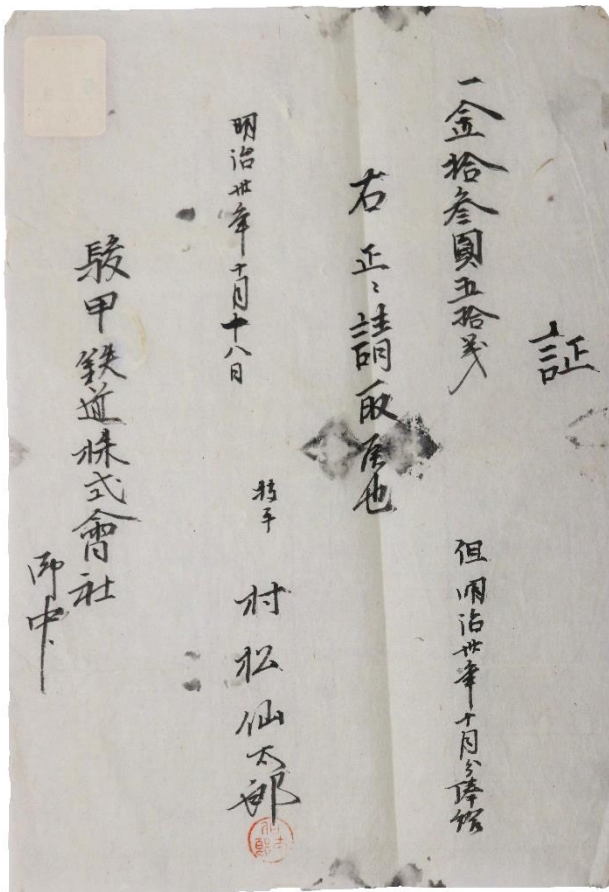 証
一金拾参圓五拾戔
但明治卅年十月分俸給
右正ニ請取候也
明治卅年十月十八日
技手 村松仙太郎
駿甲鉄道株式會社
御中